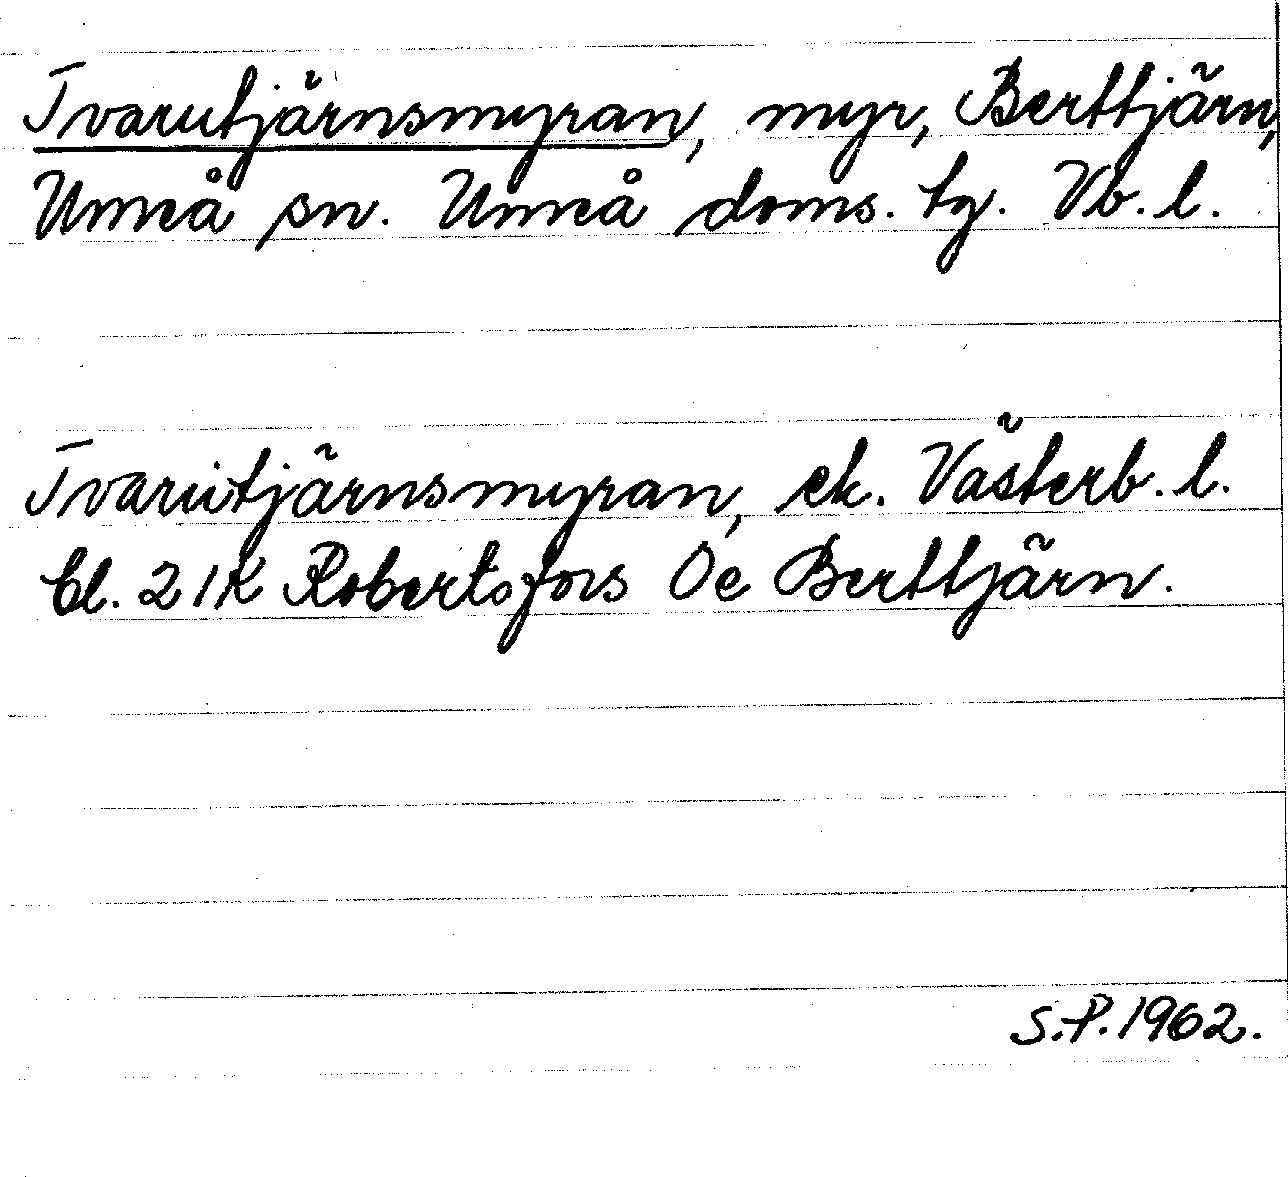 Tvarutjärnsmyran, myr, Berttjärn,
Umeå sn. Umeå doms. tg. Vb. l.
Tvarutjärnsmyran, ek. Västerb. l.
Bl. 21K Robertsfors Oe Berttjärn.
S.P. 1962.